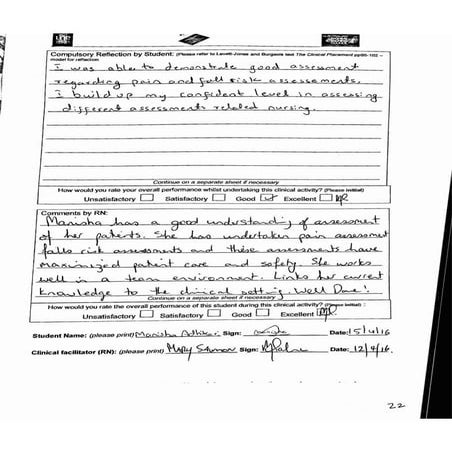 Compulsory Reflection by Student: (Please refer to Levett-Jones and Burgess text The Clinical Placement pp95-102 –
model for reflection
I was able to demonstrate good assessment
regarding pain and fall risk assessments.
I build up my confident level in assessing
different assessments related nursing.
Continue on a separate sheet if necessary
How would you rate your overall performance whilst undertaking this clinical activity? (Please initial)
Unsatisfactory Satisfactory Good Excellent
Comments by RN:
Manisha has a good understanding of assessment
of her patients. She has undertaken pain assessment
falls risk assessments and these assessments have
maximized patient care and safety. She works
well in a team environment. Links her current
knowledge to the clinical setting. Well Done!
Continue on a separate sheet if necessary
How would you rate the overall performance of this student during this clinical activity? (Please initial) :
Unsatisfactory Satisfactory Good Excellent
Student Name: (please print) Manisha Adhikari Sign: Date: 15/4/16
Clinical facilitator (RN): (please print) MARY Sign: Date: 12/4/16
22